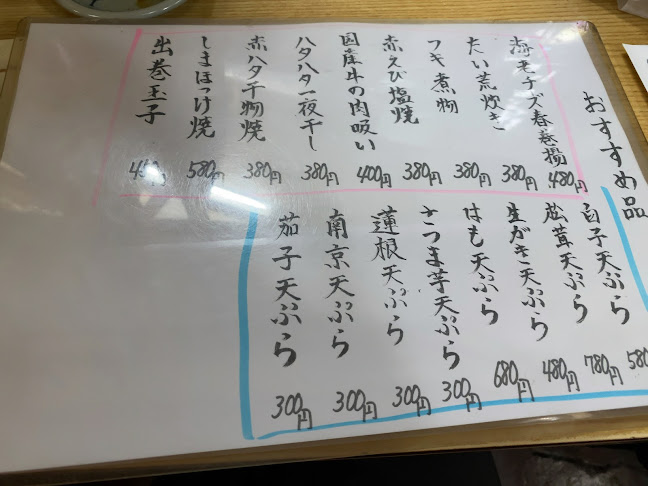 おすすめ品
海老チーズ春巻揚 480円
たい荒炊き 380円
フキ煮物 380円
赤えび塩焼 380円
国産牛の肉吸い 400円
ハタハタ一夜干し 380円
赤ハタ干物焼 380円
しまほっけ焼 580円
出巻玉子
白子天ぷら 580
松茸天ぷら 780円
生がき天ぷら 480円
はも天ぷら 680円
さつま芋天ぷら 300円
蓮根天ぷら 300円
南京天ぷら 300円
茄子天ぷら 300円